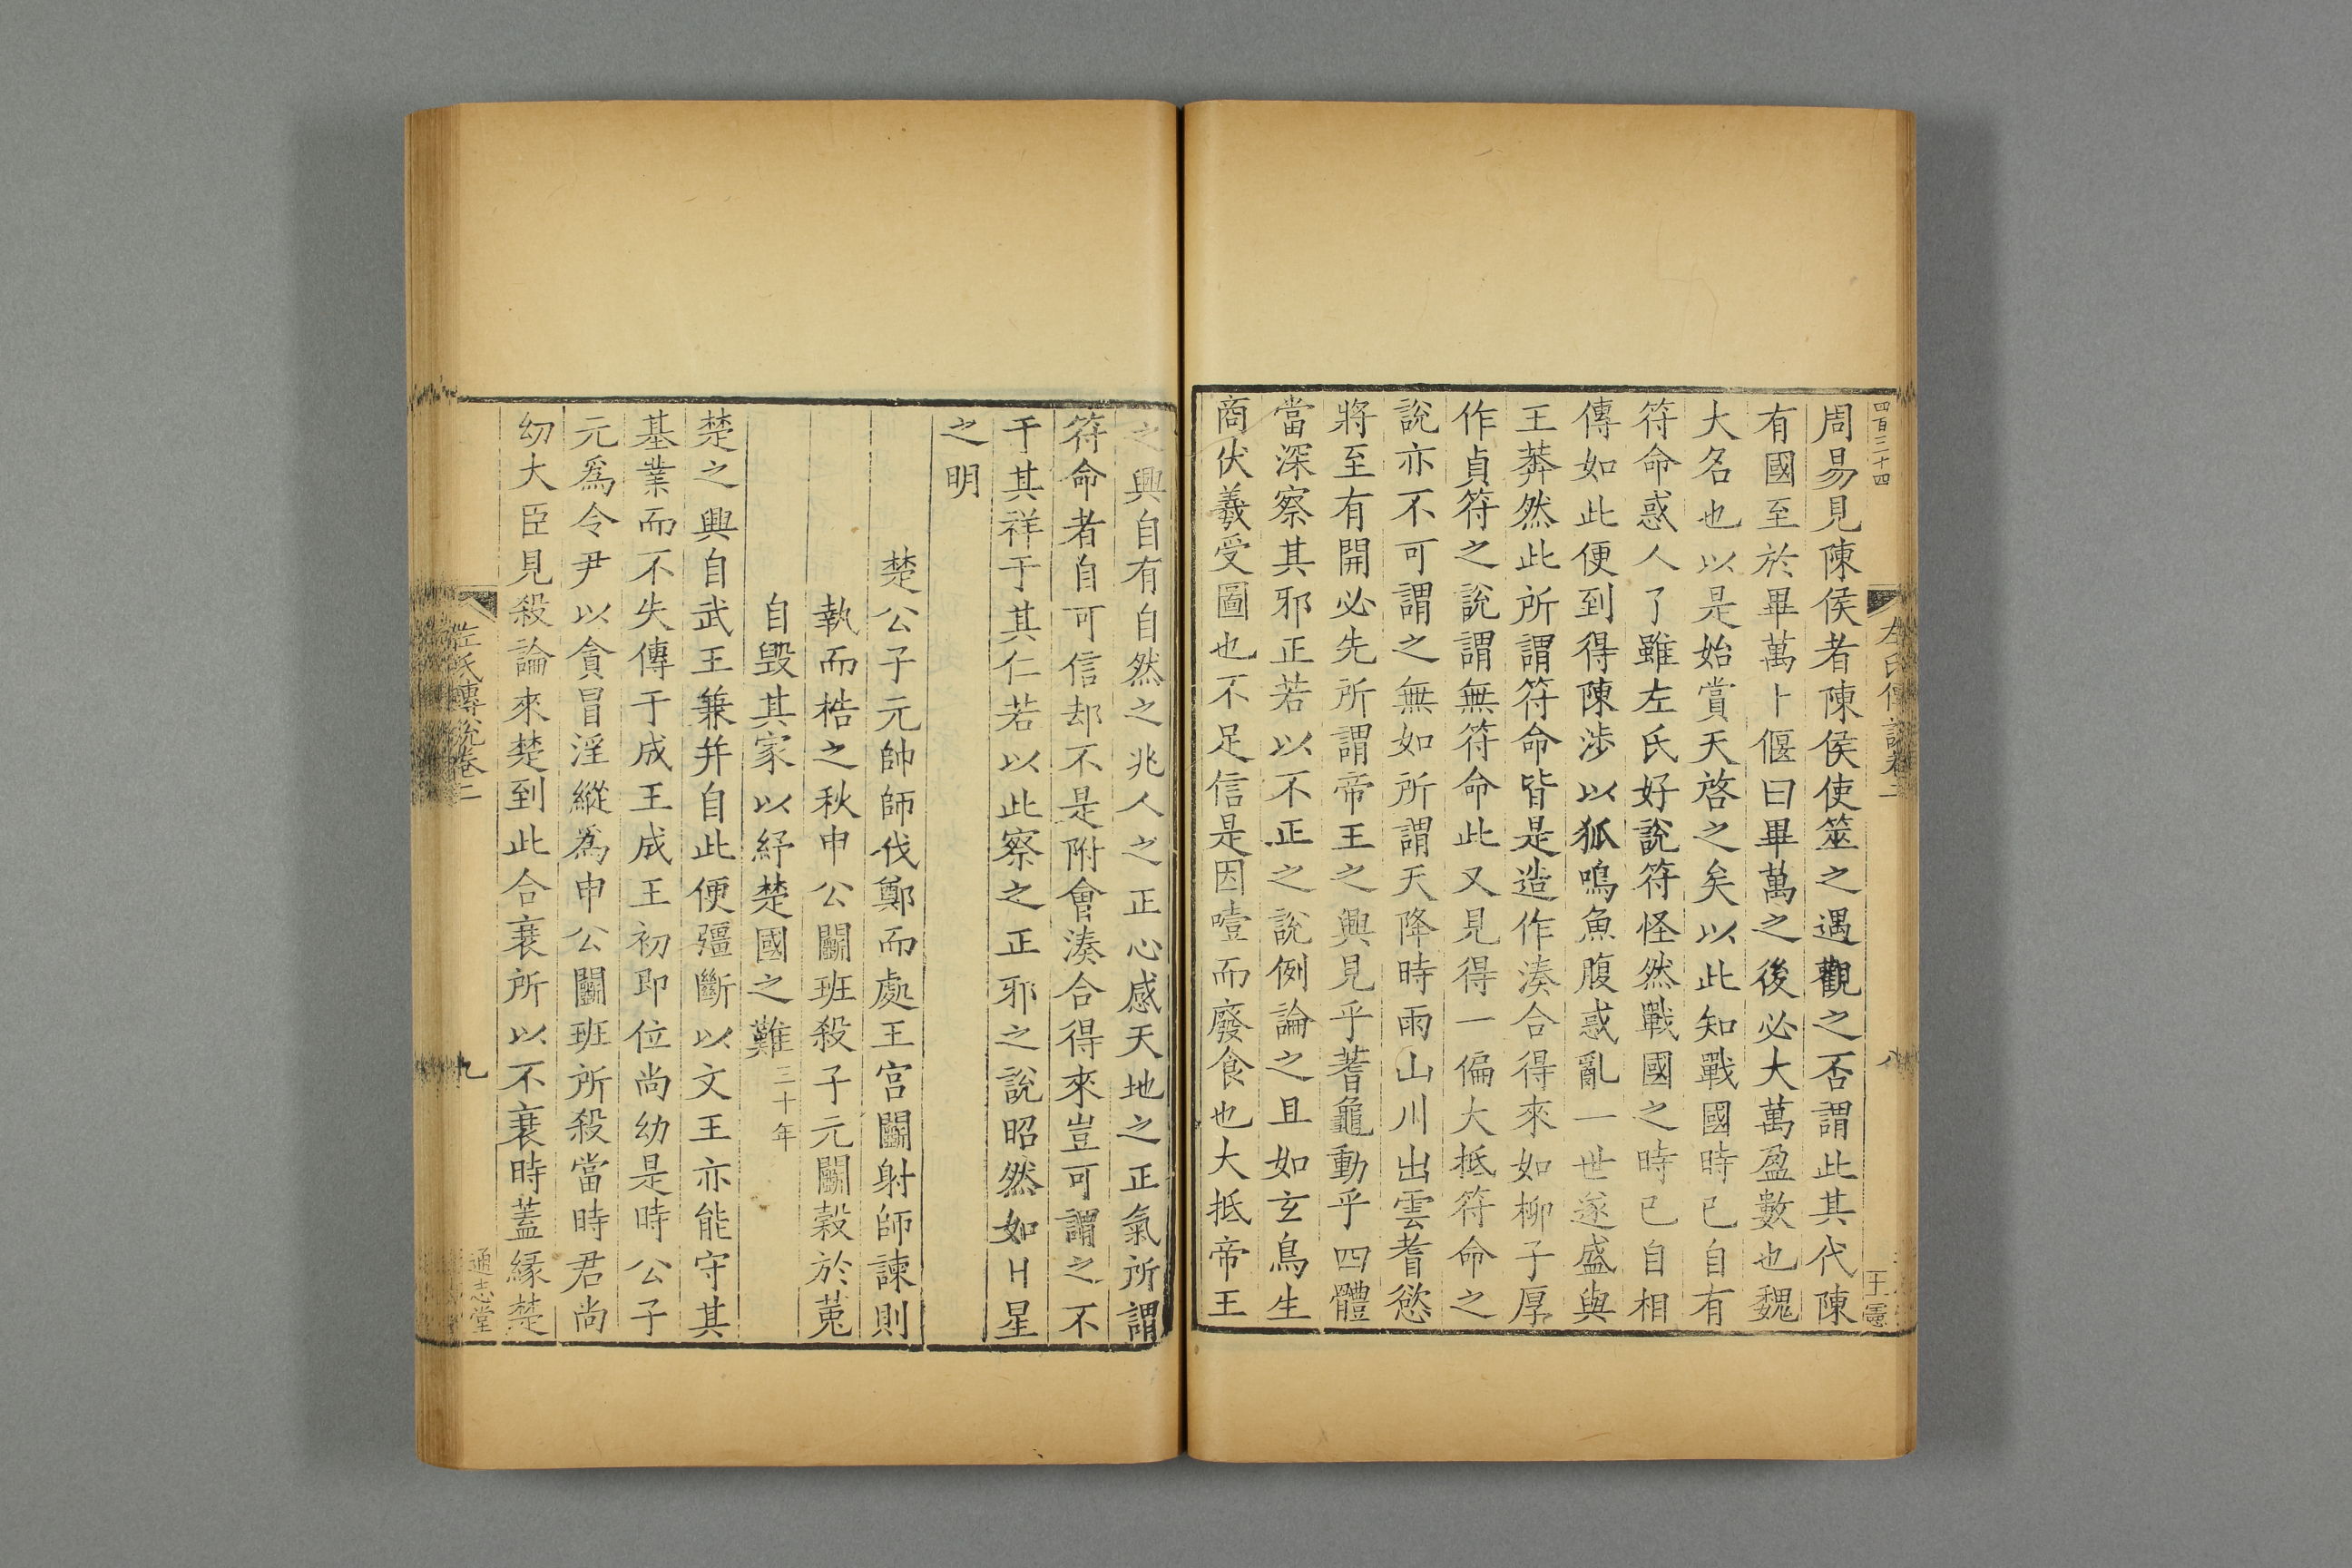 四百三十四
左氏傳說卷二
八
周易見陳侯者陳侯使筮之遇觀之否謂此其代陳
有國至於畢萬卜偃曰畢萬之後必大萬盈數也魏
大名也以是始賞天啓之矣以此知戰國時已自有
符命惑人了雖左氏好說符怪然戰國之時已自相
傳如此便到得陳涉以狐鳴魚腹惑亂一世遂盛與
王莽然此所謂符命皆是造作湊合得來如柳子厚
作貞符之說謂無符命此又見得一偏大抵符命之
說亦不可謂之無如所謂天降時雨山川出雲耆慾
將至有開必先所謂帝王之興見乎蓍龜動乎四體
當深察其邪正若以不正之說例論之且如玄鳥生
商伏羲受圖也不足信是因噎而廢食也大抵帝王
之興自有自然之兆人之正心感天地之正氣所謂
符命者自可信却不是附會湊合得來豈可謂之不
于其祥于其仁若以此察之正邪之說昭然如日星
之明
楚公子元帥師伐鄭而處王宮鬬射師諫則
執而梏之秋申公鬬班殺子元鬬穀於菟
自毀其家以紓楚國之難三十年
楚之興自武王兼并自此便彊斷以文王亦能守其
基業而不失傳于成王成王初即位尚幼是時公子
元爲令尹以貪冒淫縱爲申公鬬班所殺當時君尚
幼大臣見殺論來楚到此合衰所以不衰時蓋緣楚
左氏傳說卷二
九
通志堂